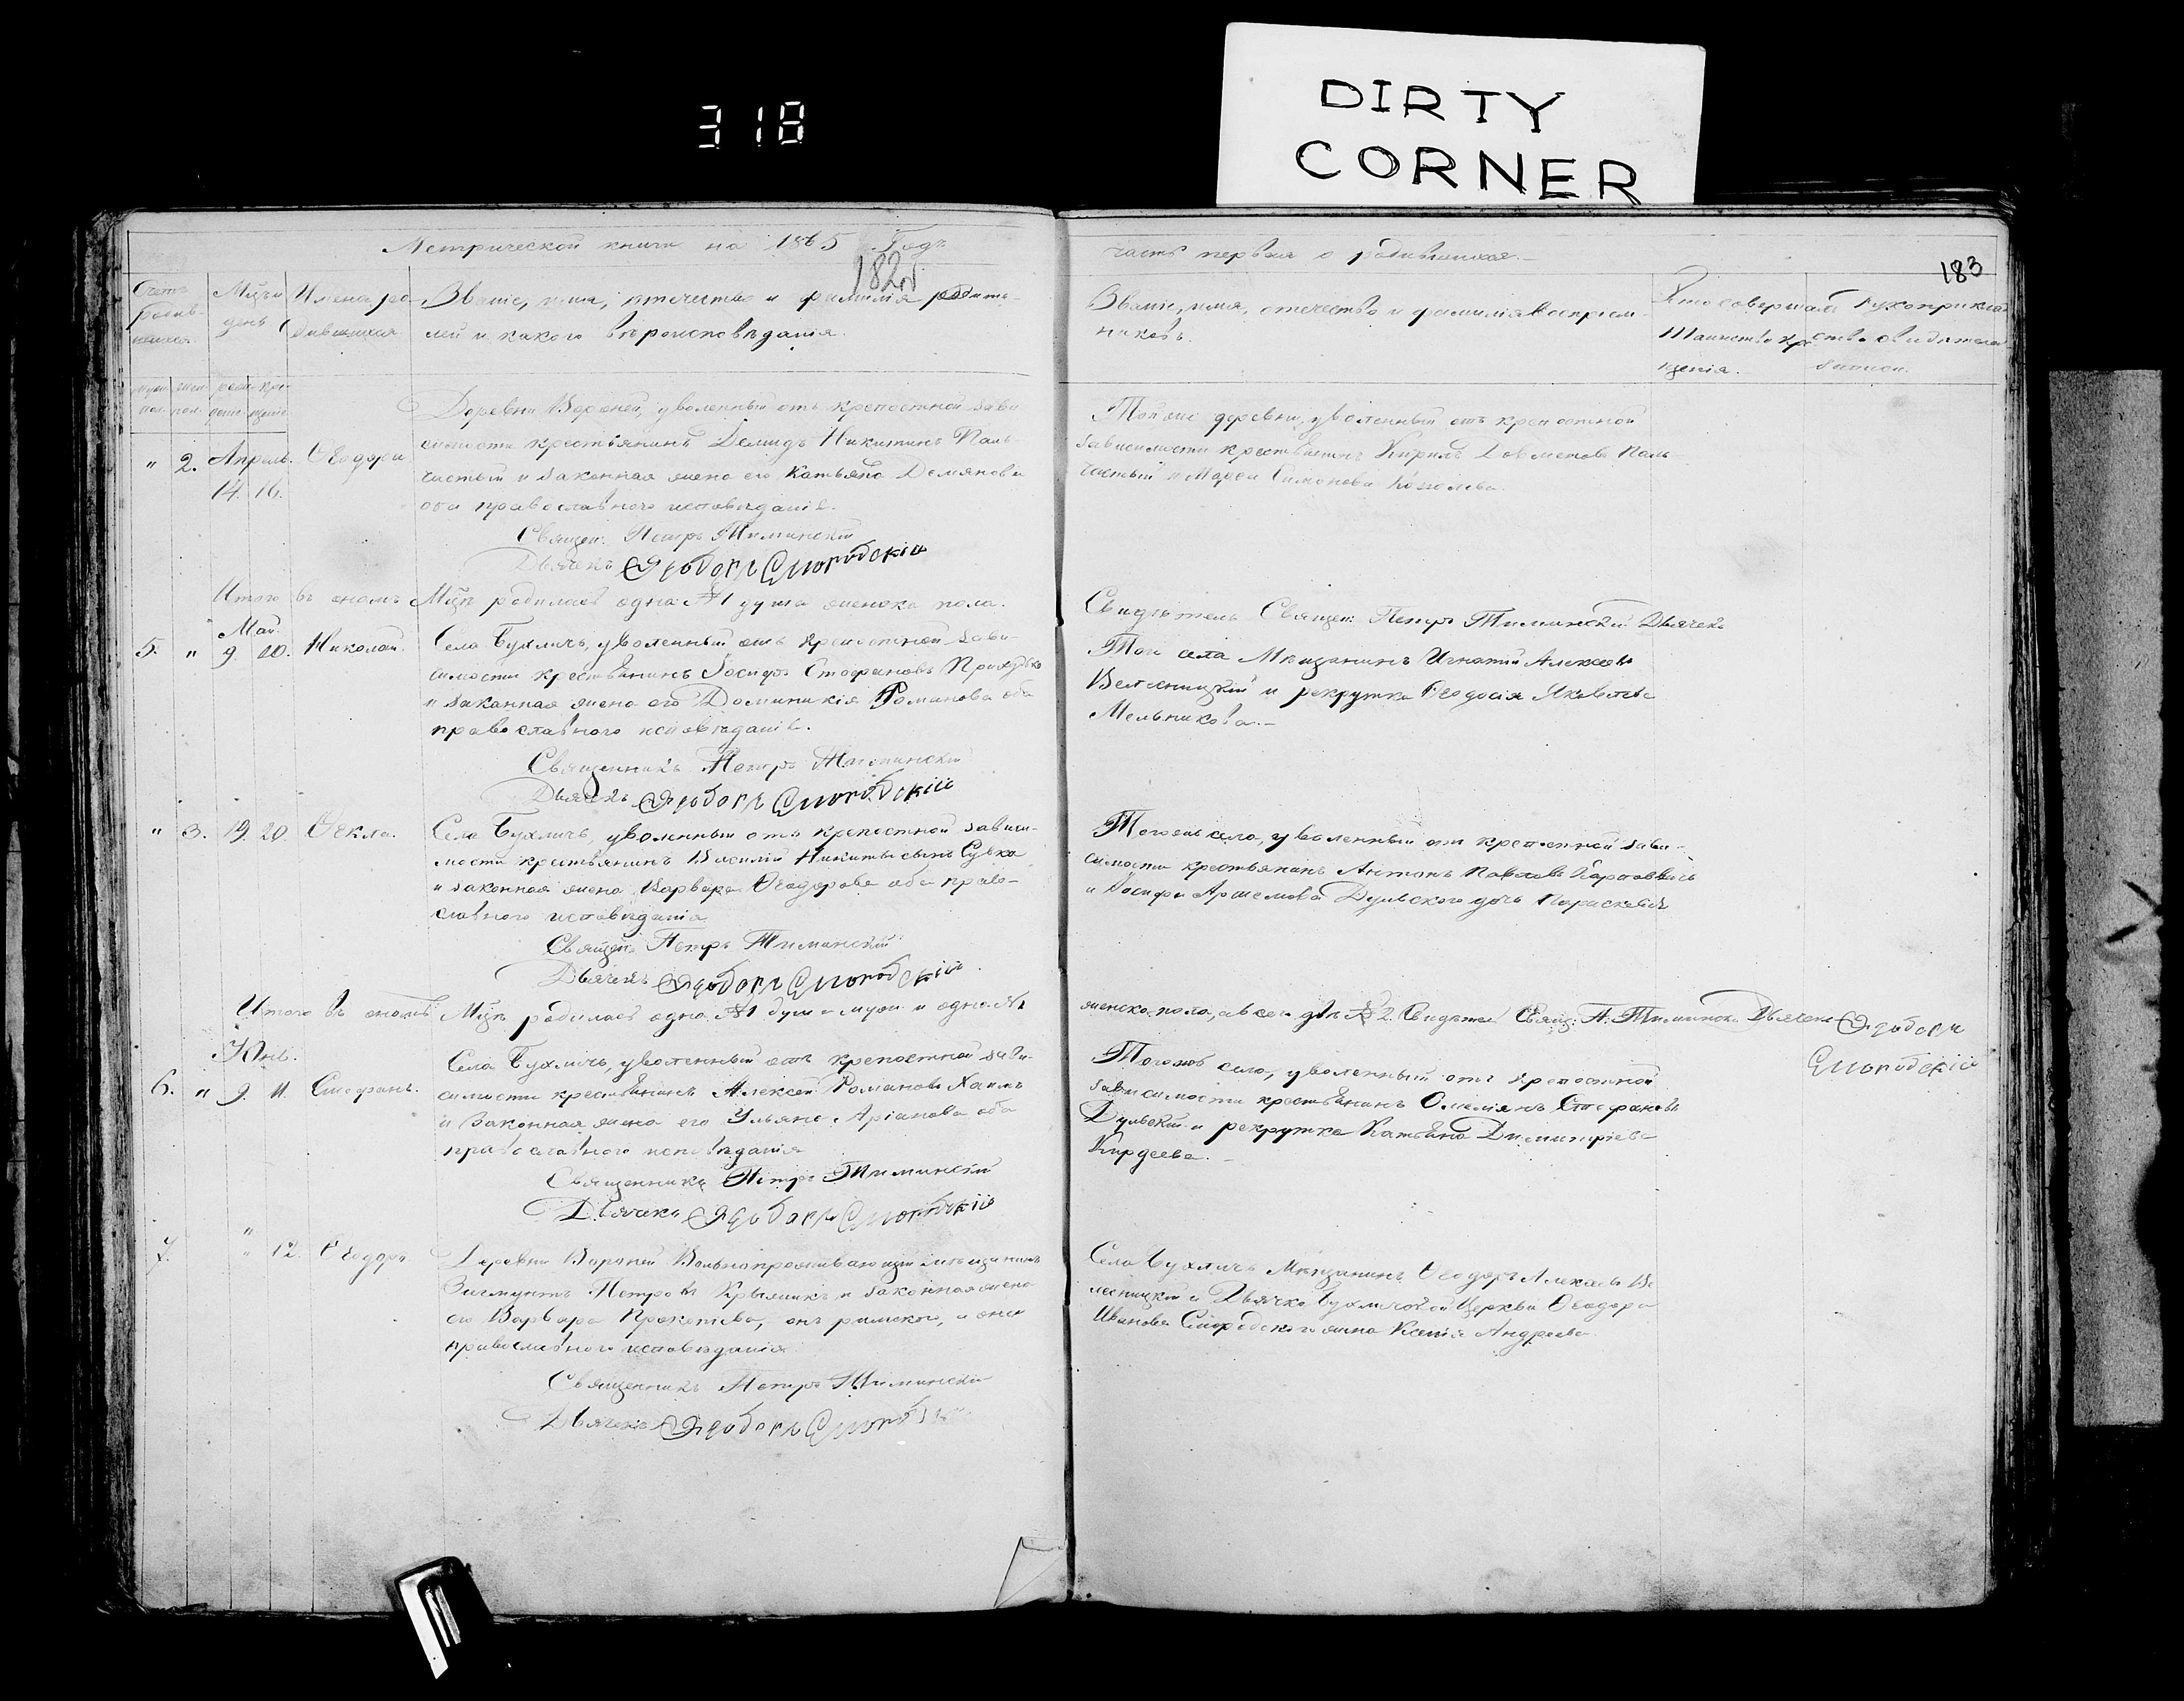 318
DIRTY
CORNER
Метрической книги на 1865 Годъ
182об
часть первая о родившихся.
183
Счетъ родив-шихся.
Мѣсяцъ день
Имена ро-дившихся
Званіе, имя, отечество и фамилія родите-
лей и какого вѣроисповѣданія.
Званіе, имя, отечество и фамилія воспріем-
никовъ.
Кто совершалъ
Таинство кре-
щенія.
Рукоприклад
ство свидѣтелей
Деревни Вороней, уволенный отъ крепостной зави
" 2. Апрель. Ѳеодора
14. 16.
симости крестьянинъ Демидъ Никитинъ Паль-
частый и законная жена его Катьяна Демянова
оба православного исповѣданія.
Священ: Петръ Тиминскій
Дьячекъ Ѳеодоръ Смородскій
Той же деревни, уволенный отъ крепостной
зависимости крестьянинъ Кирилъ Паль-
частый и Марѳа Симонова
Итого въ ономъ Мцѣ родилась одна №1 душа женска пола.
Свидѣтель Священ: Петръ Тиминскій Дьячекъ
Май.
5. " 9. 20. Николай.
Села Бухличъ, уволенный отъ крепостной зави-
симости крестьянинъ Іосифъ Стефановъ Приходько
и законная жена его Доминикія Романова оба
православного исповѣданія.
Священникъ Петръ Тиминскій
Дьячекъ Ѳеодоръ Смородскій
Того села Мѣщанинъ Игнатій Алексѣевъ
Велесницкій и рекрутка Ѳеодосія Яковлева
Мельникова.-
" 3. 19. 20. Ѳекла.
Села Бухличъ, уволенный отъ крепостной зависи-
мости крестьянинъ Василій Никиты сынъ Сувко
и законная жена Варвара Ѳеодорова оба право-
славного исповѣданія
Священ: Петръ Тиминскій
Дьячекъ Ѳеодоръ Смородскій
Того же села, уволенный отъ крепостной зави-
симости крестьянинъ Антонъ Павловъ
и Іосифа Дульского дочь Параскевія
Итого въ ономъ Мцѣ родилась одна №1 душа муж: и одна №1
женска пола, а всего двѣ №2. Свидѣтель Свящ: П. Тиминскій Дьячекъ Ѳеодоръ
Смородскій
Юнь.
6. " 9. 11. Стефанъ.
Села Бухличъ, уволенный отъ крепостной зави-
симости крестьянинъ Алексѣй Романовъ Хаимъ
и законная жена его Ульяна Аріанова оба
православного исповѣданія
Священникъ Петръ Тиминскій
Дьячекъ Ѳеодоръ Смородскій
Тогожъ села, уволенный отъ крепостной
зависимости крестьянинъ Омелянъ Стефановъ
Дульскій и рекрутка Катьяна Димитріева
Кирдеева.-
7. " " 12. Ѳеодоръ
Деревни Вороней Вольнопроживающій мѣщанинъ
Зигмунтъ Петровъ и законная жена
его Варвара Прокопьева, онъ римского, а она
православного исповѣданія
Священникъ Петръ Тиминскій
Дьячекъ Ѳеодоръ Смородскій
Села Бухличъ Мѣщанинъ Ѳеодоръ Алексѣевъ Ве
лесницкій и Дьячка Бухличской Церкви Ѳеодора
Иванова Смородского жена Ксенія Андреева.